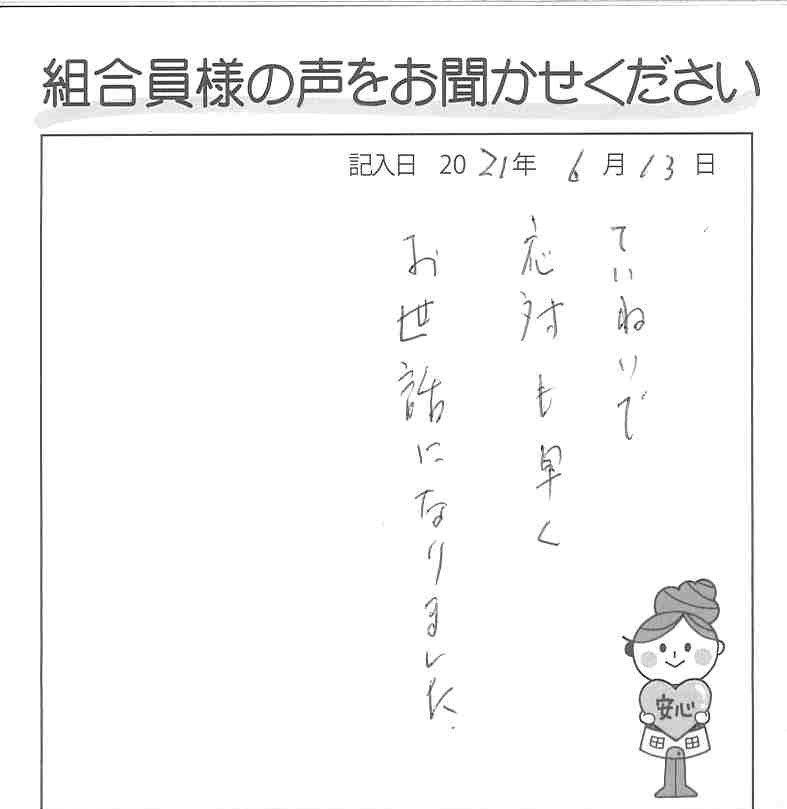 組合員様の声をお聞かせください
記入日 2021年 6月13日
ていねいで
応対も早く
お世話になりました.
安心